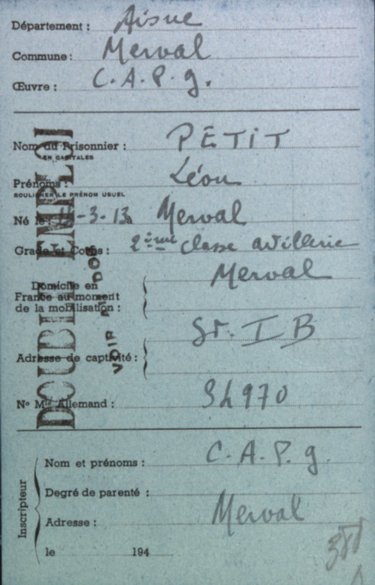 Département : Aisne
Commune : Merval
Œuvre : C. A. P. g.
Nom du Prisonnier : PETIT
EN CAPITALES
Prénoms : Léon
SOULIGNER LE PRÉNOM USUEL
Né le -3-13 Merval
Grade et Corps : 2ème classe artillerie
Domicile en
France au moment
de la mobilisation : Merval
St. I B
Adresse de captivité :
N° Mle Allemand : 34970
DOUBLE EMPLOI
VOIR
Inscripteur
Nom et prénoms : C. A. P. g.
Degré de parenté :
Adresse : Merval
le 194